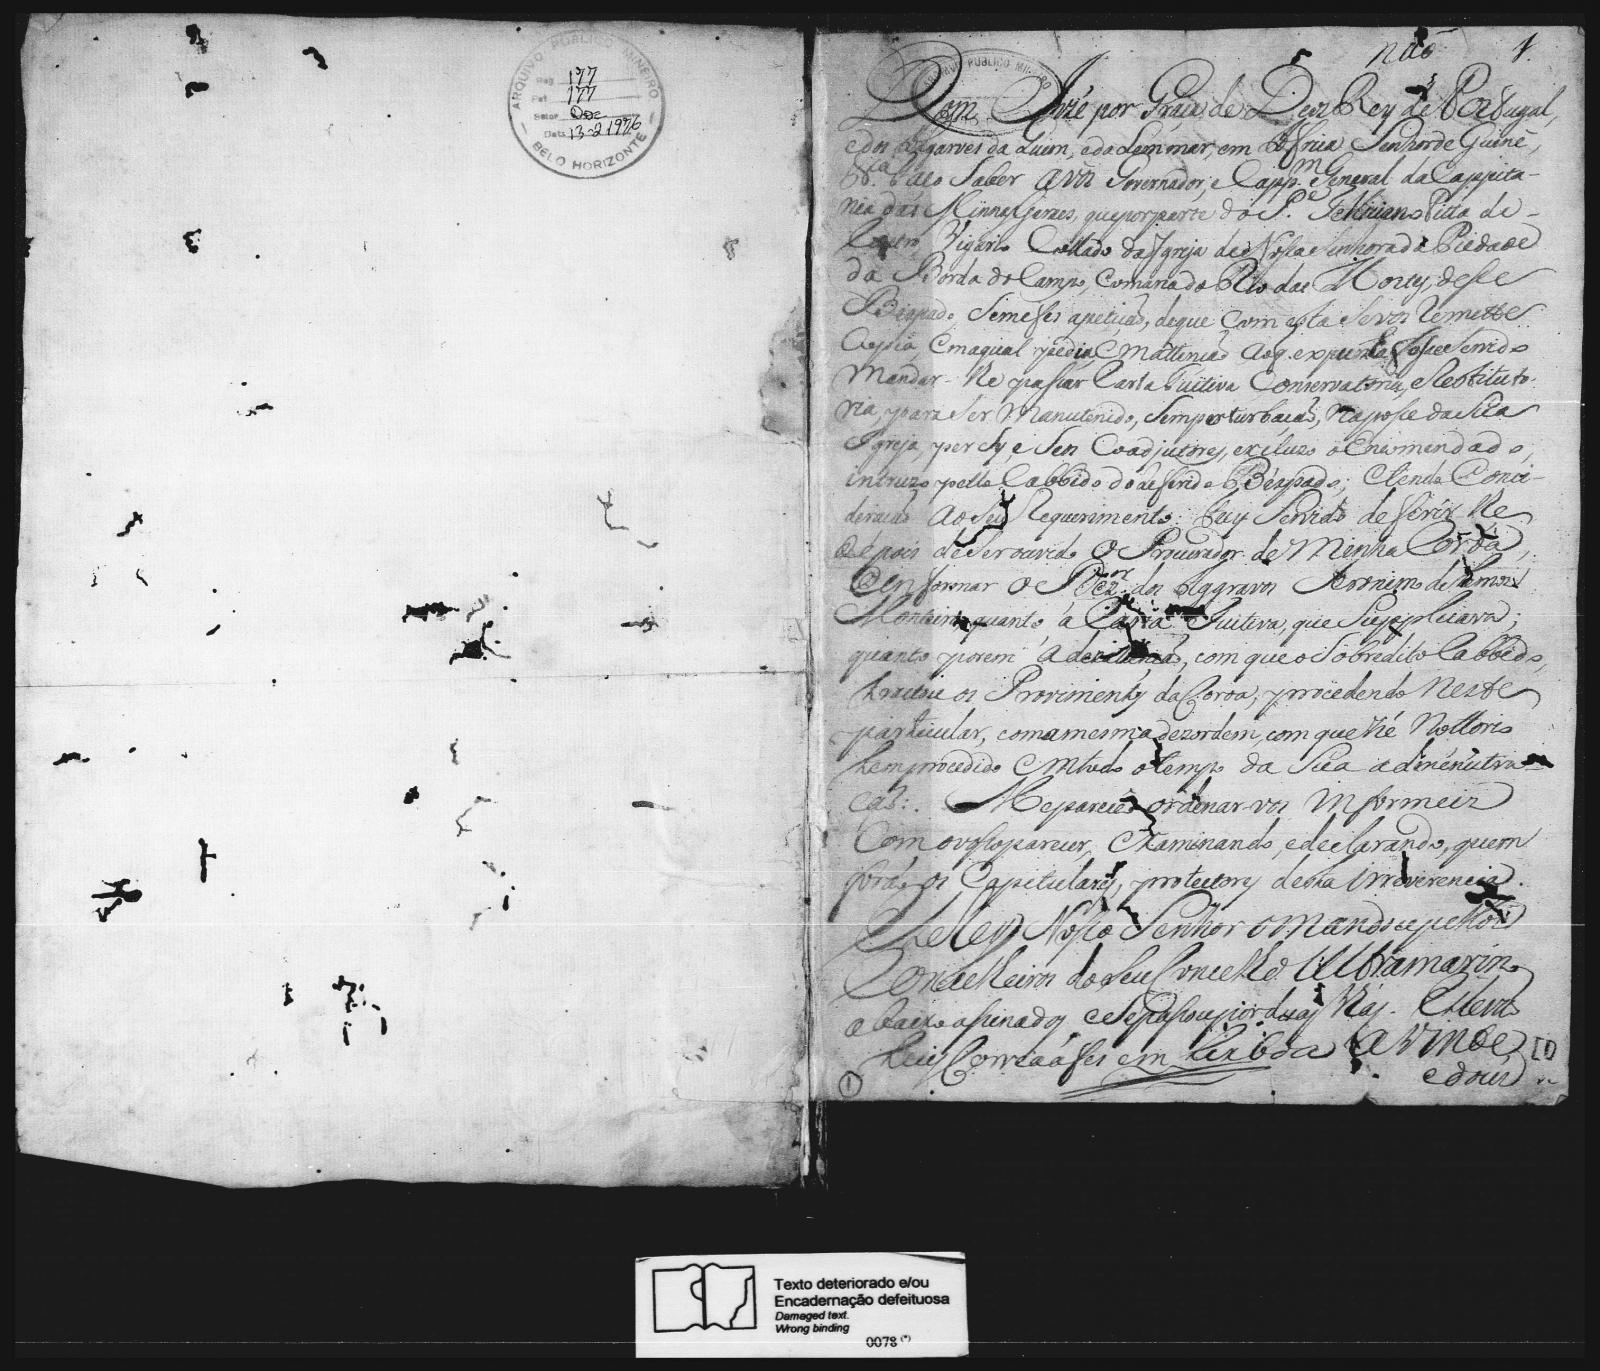 ARQUIVO PUBLICO MINEIRO
Reg. 177
Pat. 177
Setor Doc
Data 13-2-1976
BELO HORIZONTE
não 1.
Dom Jozé por Graça de Deoz Rey de Portugal,
e dos Algarves da quem, e da Lem mar, em Affrica Senhor de Guiné,
&.ª Faço Saber a vós Governador, e Capp.m General da Cappita-
nia das Minnas Geraes, que por parte do P.e Felliciano Pitta de
Castro, Vigario Collado da Igreja de Nossa Senhora da Piedade
da Borda do Campo, Comarca do Rio das Mortes, desse
Bispado Se me fes a petiçaõ, de que Com esta Se vos Remette
Copia, em a qual pedia, em attençaõ ao q. expunha, fosse Servido
Mandar-lhe passar Carta Tuitiva Conservatoria, e Restituto-
ria, para Ser Manutenido, Sem perturbaçaõ, na posse da Sua
Igreja, per Sy, e Seus Coadjutores, excluzo o Encomendado,
intruzo pello Cabbido do referido Bispado; e tendo Conci-
deraçaõ ao Seu Requerimento: Fuy Servido deferir-lhe
depois de Ser ouvido o Procurador de Minha Coroa,
e Informar o Dez.or dos Aggravos Jeronimo de Lemos
Monteiro quanto á Carta Tuitiva, que Suppplicava;
quanto porem á com que o Sobredito Cabbido,
tractou os Provimentos da Coroa, procedendo neste
particular, com a mesma dezordem, com que hé Nottorio
tem procedido em todo o tempo da Sua adminnistra-
çaõ: Me pareceo ordenar-vos informeis
Com o vosso parecer, examinando, e declarando, quem
foraõ os Capitulares, protectores dessa irreverencia.
El Rey Nosso Senhor o mandou pellos
Concelheiros do Seu Concelho Ultramarino
abaixo asinados e Se passou por duas Vias. Estevaõ
Luis Correa a fes em Lixboa a vinte
e dous
[1]
1
Texto deteriorado e/ou
Encadernação defeituosa
Damaged text.
Wrong binding
0078 (*)